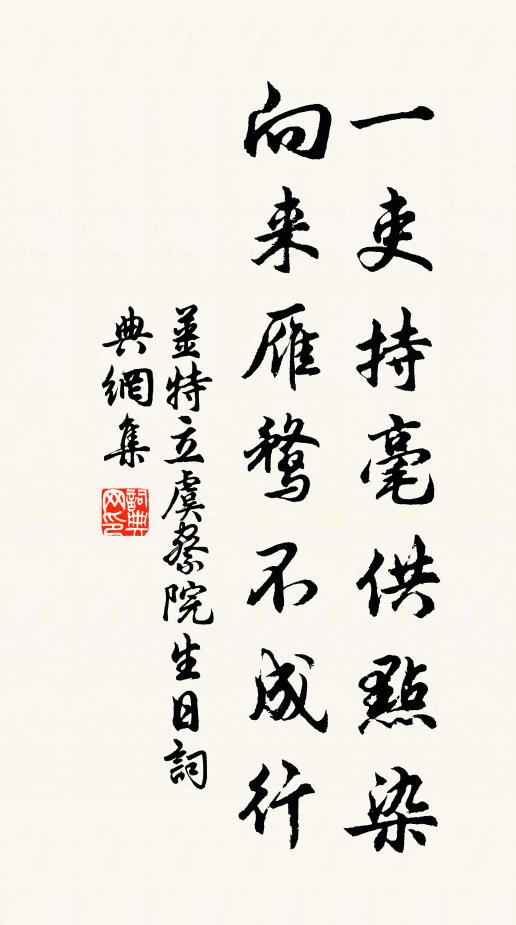 一吏持毫供點染
向来雁鶩不成行
薑特立虞察院生日詞
典網集
詞典网印